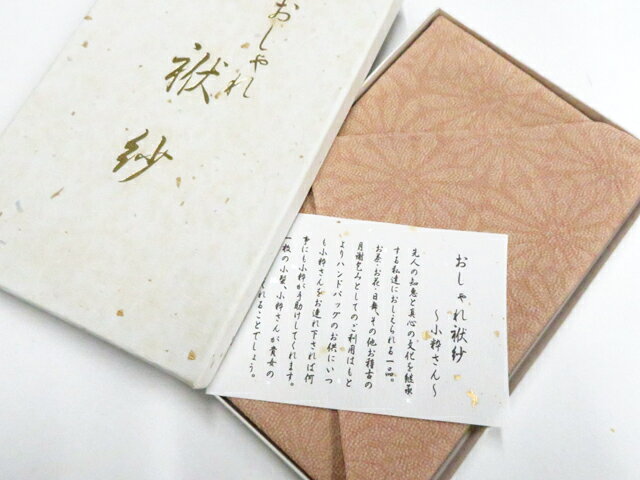 おしゃれ
袱紗
おしゃれ袱紗
〜小粋さん〜
先人の知恵と真心の文化を継承
する私達におしえられる一品。
お茶・お花・日舞、その他お稽古の
月謝包みとしてのご利用はもと
よりハンドバッグのお供にいつ
も小粋さんをお連れ下されば何
事にも小粋が手助けしてくれます。
一枚の小梨、小粋さんが貴女の
れることでしょう。